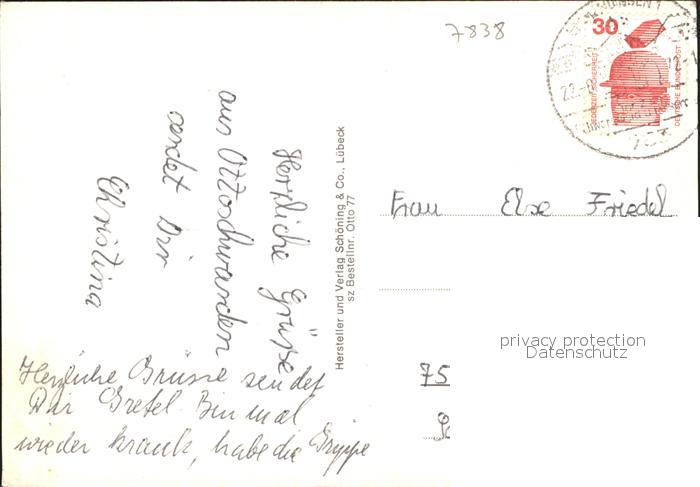 7838
30
JEDERZEIT SICHERHEIT
DEUTSCHE BUNDESPOST
Herzliche Grüße
aus Ottoschwanden
sendet Dir
Christina
Hersteller und Verlag Schöning & Co., Lübeck
sz Bestellnr. Otto 77
Frau Else Friedel
privacy protection
Datenschutz
75
Herzliche Grüsse sendet
Dir Gretel. Bin mal
wieder krank, habe die Grippe